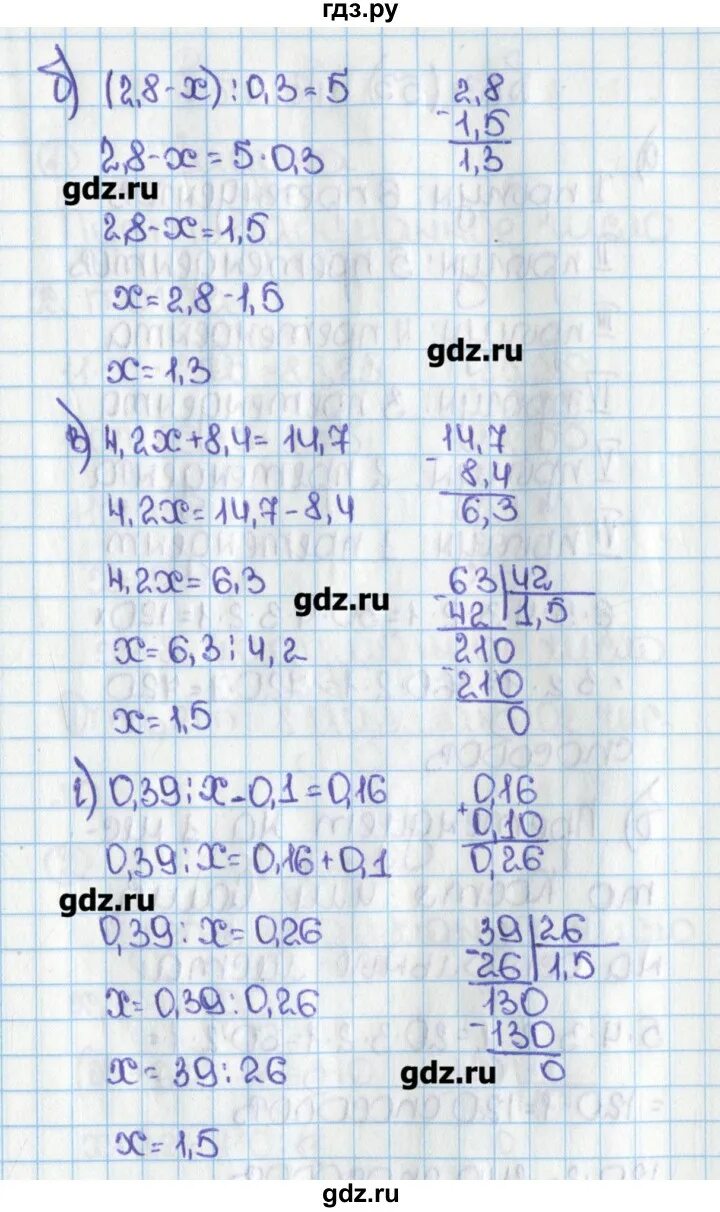 гдз.ру
б) (2,8-x):0,3=5
2,8-x=5·0,3
gdz.ru
2,8-x=1,5
x=2,8-1,5
x=1,3
2,8
-1,5
1,3
gdz.ru
в) 4,2x+8,4=14,7
4,2x=14,7-8,4
4,2x=6,3
gdz.ru
x=6,3:4,2
x=1,5
14,7
- 8,4
6,3
-63|42
42|1,5
-210
210
0
г) 0,39:x-0,1=0,16
0,39:x=0,16+0,1
gdz.ru
0,39:x=0,26
x=0,39:0,26
x=39:26
x=1,5
0,16
+0,10
0,26
-39|26
26|1,5
130
-130
0
gdz.ru
gdz.ru